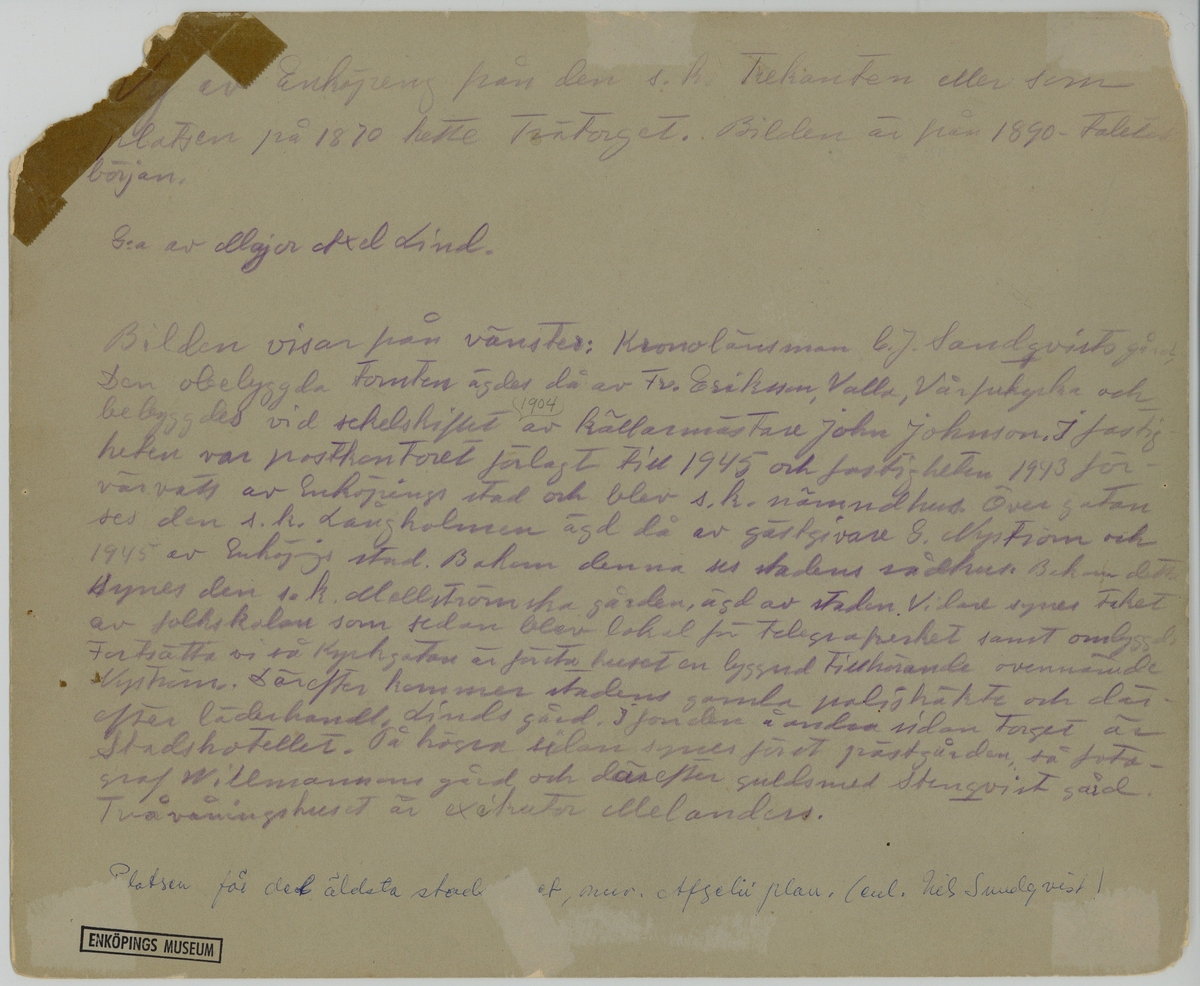 av Enköping från den s.k. Trekanten eller som
platsen på 1870 hette Trätorget. Bilden är från 1890-talets
början.
G:a av Major Axel Lind.
Bilden visar från vänster: Kronolänsman C.J. Sandqvists gård,
Den obebyggda tomten ägdes då av Fr. Eriksson, Valla, Vårfrukyrka och
bebyggdes vid sekelskiftet (1904) av källarmästare John Johnson. I fastig
heten var postkontoret förlagt till 1945 och fastigheten 1943 för-
värvats av Enköpings stad och blev s.k. nämndhus. Över gatan
ses den s.k. Långholmen ägd då av gästgivare G. Nyström och
1945 av Enköpgs stad. Bakom denna ses stadens rådhus. Bakom detta
synes den s.k. Mellströmska gården, ägd av staden. Vidare synes taket
av folkskolan som sedan blev lokal för telegrafverket samt ombyggds
Fortsätta vi så Kyrkgatan är första huset en byggnd tillhörande ovennämnde
Nyström. Därefter kommer stadens gamla polishäkte och där-
efter läderhandl. Linds gård. I fonden å andra sidan torget är
Stadshotellet. På högra sidan synes först prästgården, så foto-
graf Willmansons gård och därefter guldsmed Stenqvist gård.
Tvåvåningshuset är exekutor Melanders.
Platsen för det äldsta stads et, nuv. Afzelii plan. (enl. Nils Sundqvist)
ENKÖPINGS MUSEUM